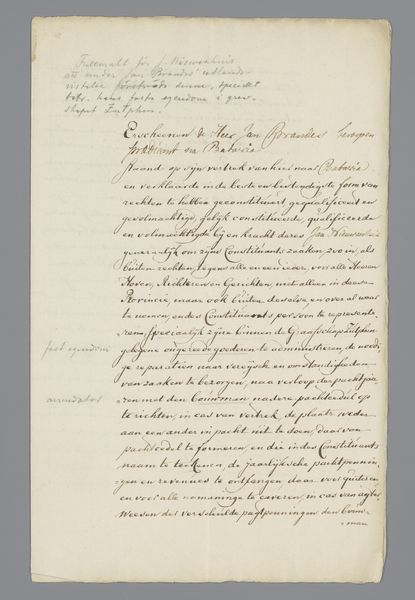 Fullmakt för J. Nieuwenhuis
att under Jan Brandes' utlands-
vistelse företräda denne, speciellt
betr. hans fasta egendom i grev-
skapet Zutphen.
Erscheenen de Heer Jan Brandes beroepen
predicant na Batavia
staande op zijn vertrek van hier naar Batavia
en verklaarde in de beste en bestendigste form van
rechten te hebben geconstitueert gequalificeert en
gevolmachtigt, gelijk constitueerde, qualificeerde
en volmachtigde bij en kracht deses Jan Nieuwenhuis
generaalijk om zijns Constituants zaaken, zoo in, als
buiten rechten, tegens alle en een ieder, voor alle Heeren
Hoven, Richteren en Gerichten, niet alleen in deese
Provincie, maar ook buiten deselve, en overal waar
te nemen, en des Constituants persoon te represente-
ren, speciaalijk zijne binnen de Graafschap Zutphen
fast egendom
gelegene ongereede goederen te administreren de noodi-
ge reparatien naar vereysch en omstandigheden
van zaaken te bezorgen, naa verloop der pachtjaa-
arrendator
ren met den bouwman nadere pachtcedul op
te richten, in cas van vertrek de plaats weder
aan een ander in pacht uit te doen, daar van
pachtcedul te formeren en die in des Constituants
naam te teekenen, de jaarlijksche pachtpennin-
gen en revenues te ontfangen daar voor quiteren
en voor alle namaninge te caveren, in cas van agter-
weesen der verschulde pagtpenningen den bouw-
man